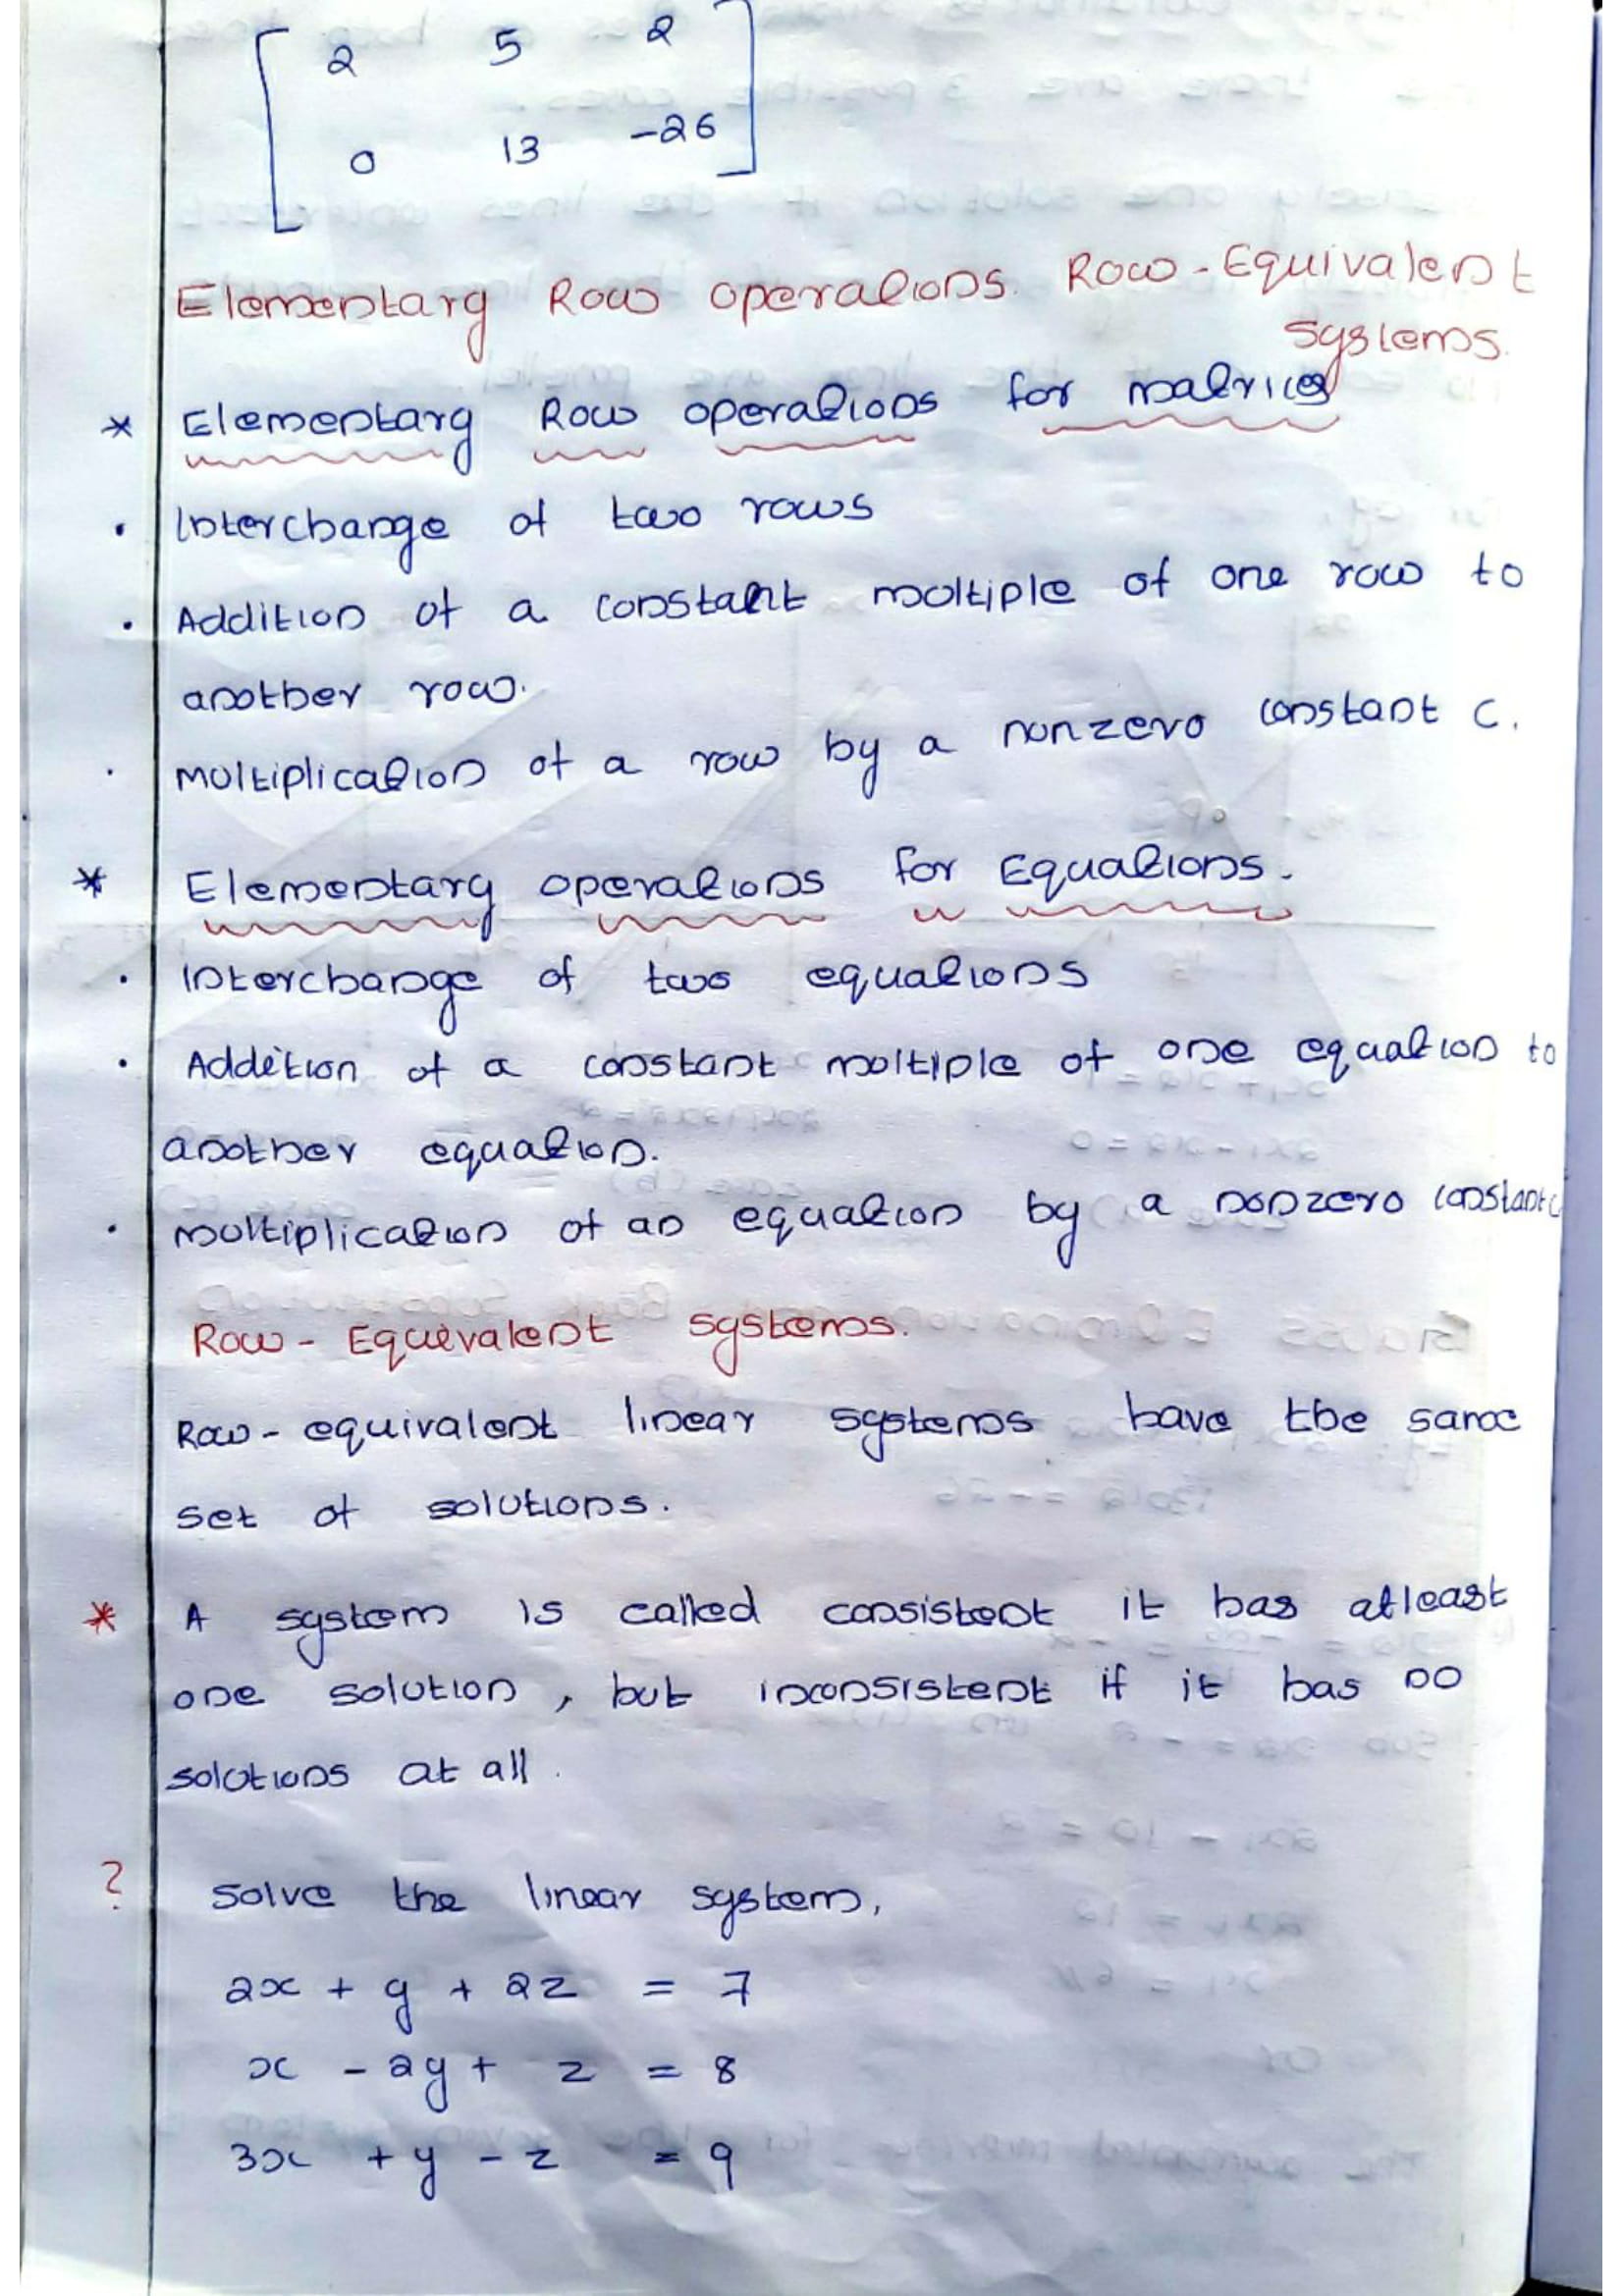 2 5 2
0 13 -26
Elementary Row operations. Row-Equivalent
Systems.
* Elementary Row operations for matrices
• Interchange of two rows
• Addition of a constant multiple of one row to
another row.
• Multiplication of a row by a nonzero constant C.
* Elementary operations for Equations.
• Interchange of two equations
• Addition of a constant multiple of one equation to
another equation.
• multiplication of an equation by a nonzero constant c
Row-Equivalent systems.
Row-equivalent linear systems have the same
set of solutions.
* A system is called consistent it has atleast
one solution, but inconsistent if it has no
solutions at all.
? Solve the linear system,
2x + y + 2z = 7
x - 2y + z = 8
3x + y - z = 9